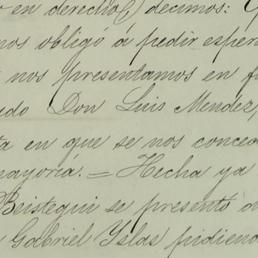 en derecho) decimos: 
nos obligó á pedir esper
nos presentamos en f
do Don Luis Mendez,
ta en que se nos conced
mayoría. = Hecha ya
Beistegui se presentó d
Gabriel Yslas pidieno